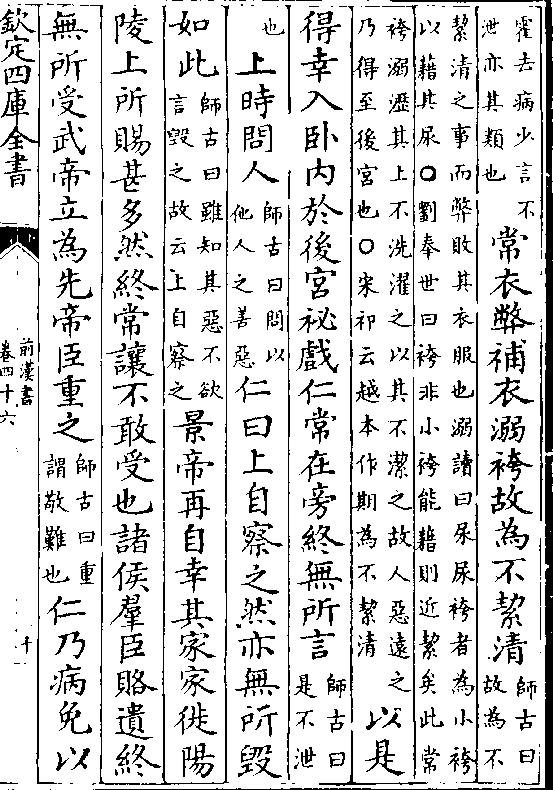 霍去病少言不
泄亦其類也
常衣弊補衣溺袴故為不絜清
師古曰
故為不
絜清之事而弊敗其衣服也溺讀曰尿尿袴者為小袴
以藉其尿○劉奉世曰袴非小袴能藉則近絜矣此常
袴溺瀝其上不洗濯之以其不潔之故人惡遠之
乃得至後宮也○宋祁云越本作期為不絜清
以是
得幸入卧内於後宮祕戲仁常在旁終無所言
師古曰
是不泄
也
上時問人
師古曰問以
他人之善惡
仁曰上自察之然亦無所毀
如此
師古曰雖知其惡不欲
言毀之故云上自察之
景帝再自幸其家家徙陽
陵上所賜甚多然終常讓不敢受也諸侯羣臣賂遺終
無所受武帝立為先帝臣重之
師古曰重
謂敬難也
仁乃病免以
欽定四庫全書
前漢書
卷四十六
十